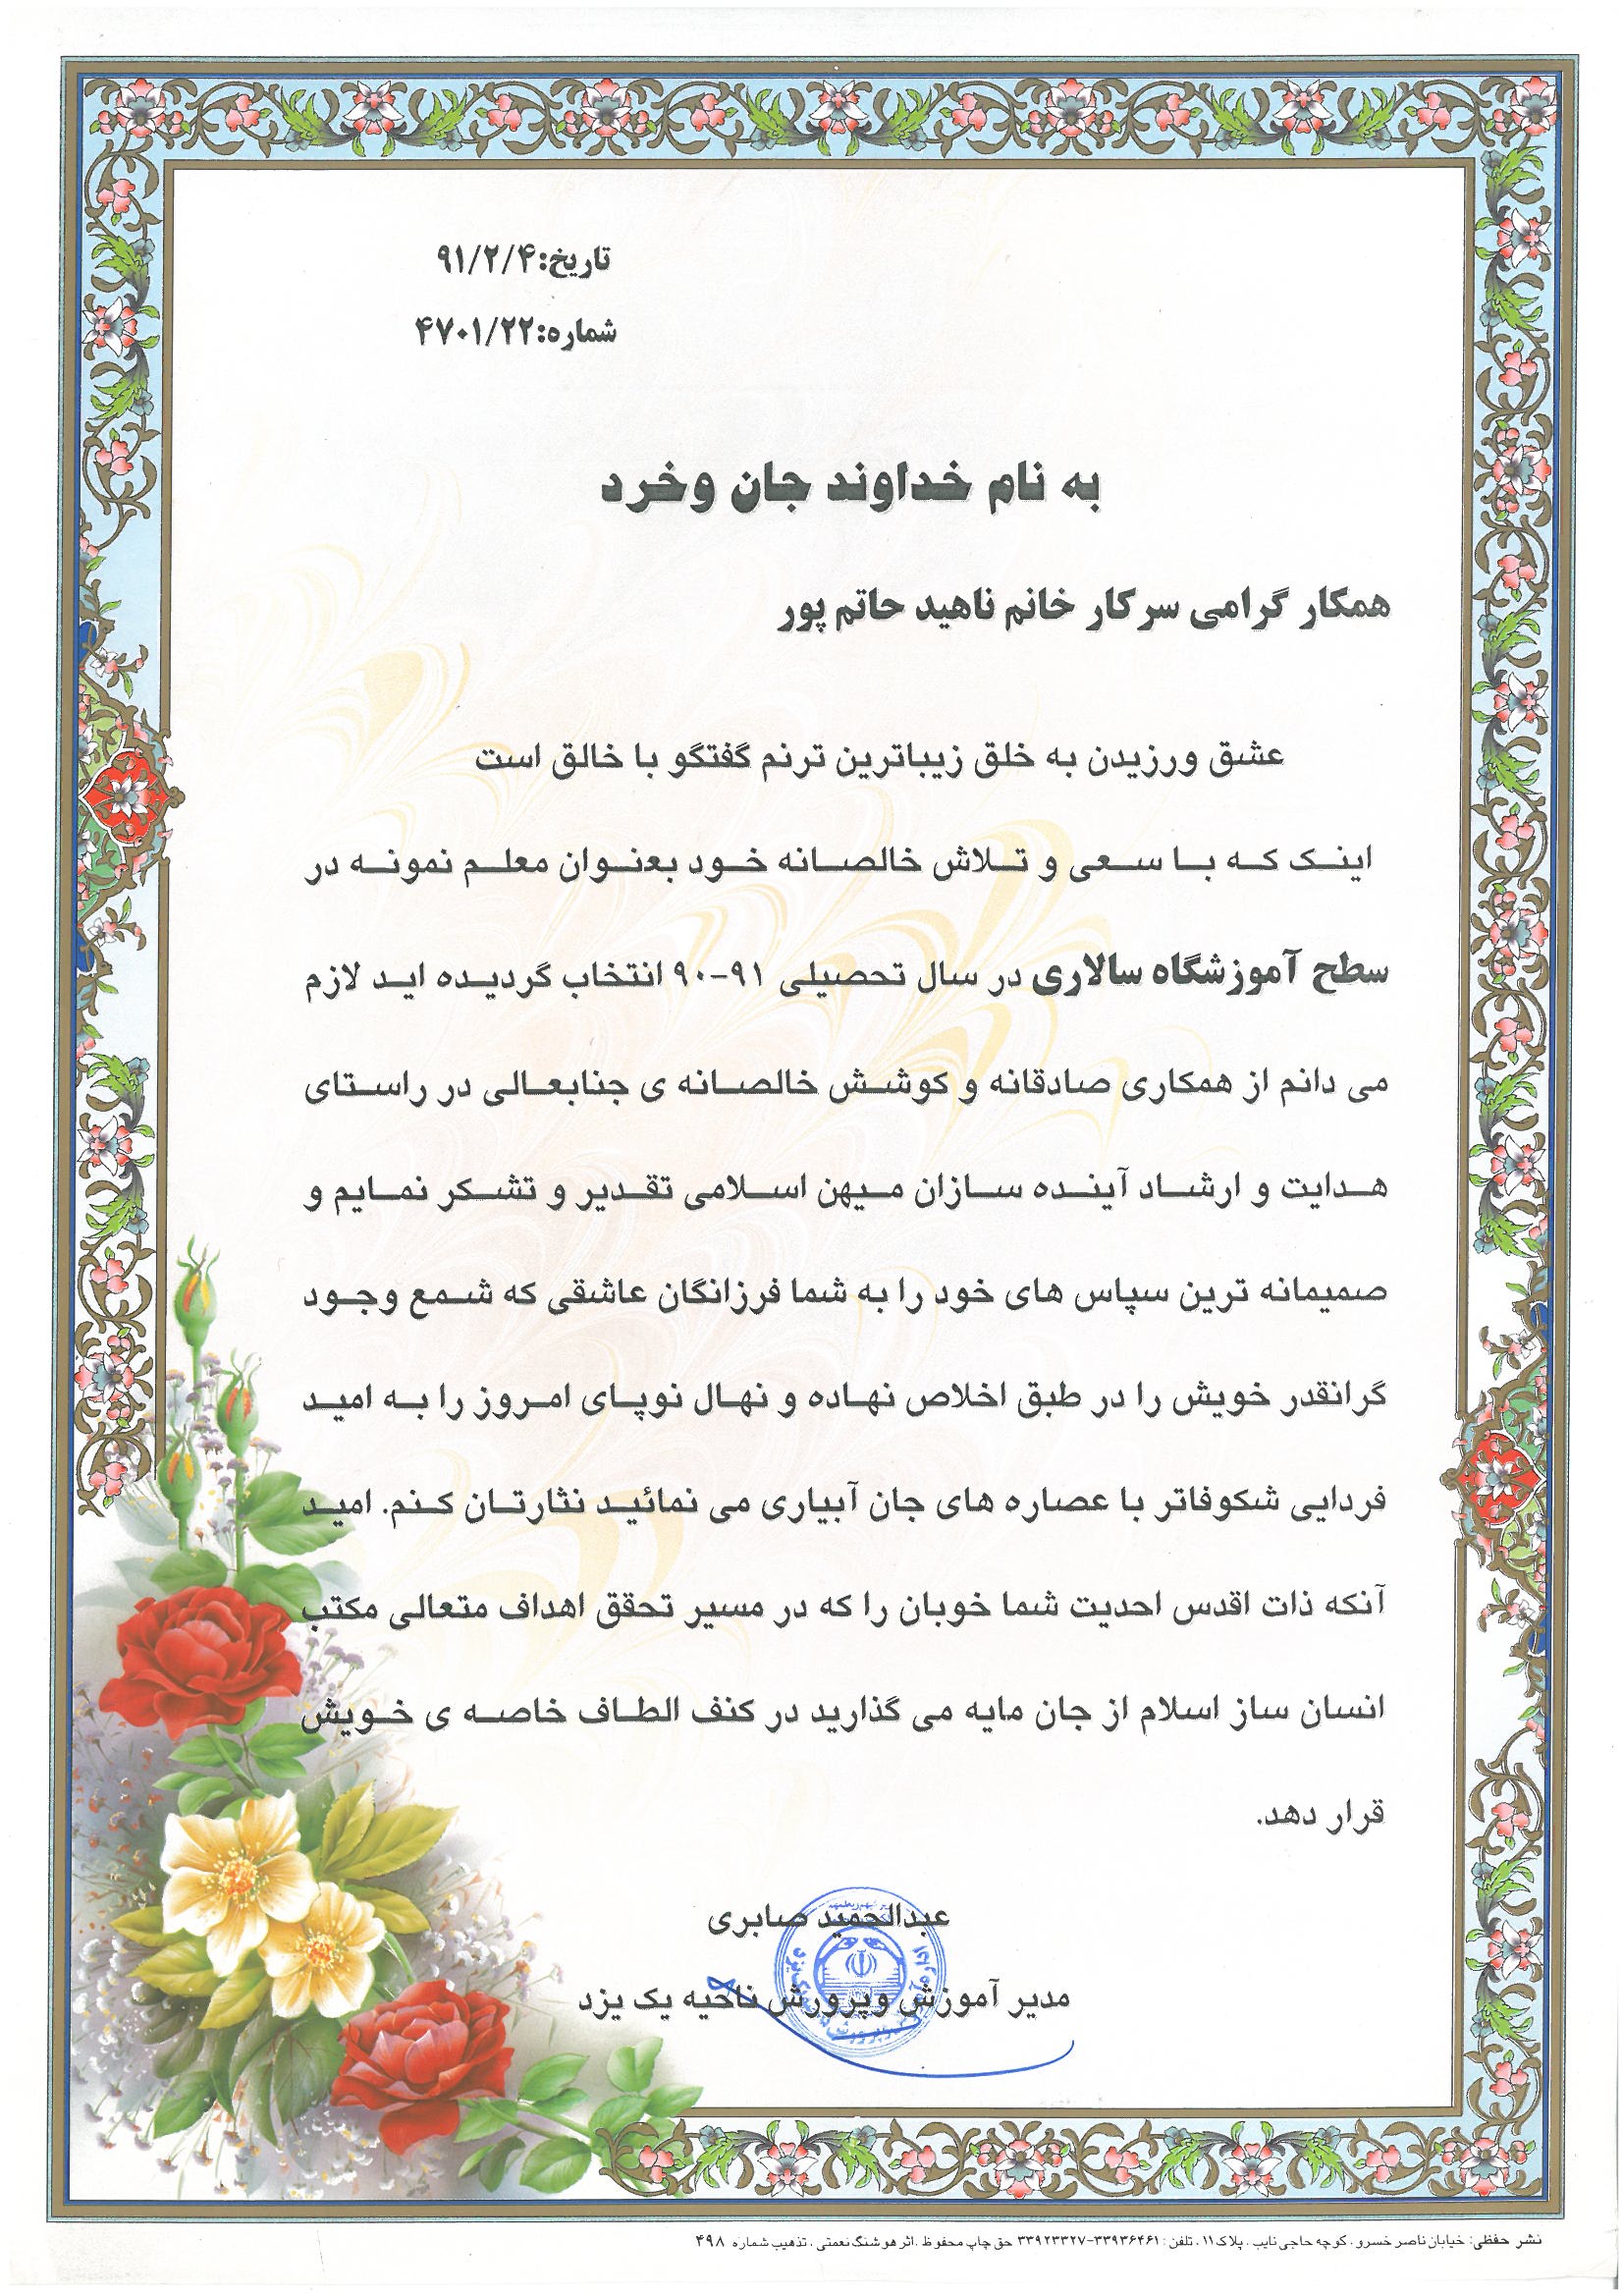 تاریخ:۹۱/۲/۴
شماره:۴۷۰۱/۲۲
به نام خداوند جان وخرد
همکار گرامی سرکار خانم ناهید حاتم پور
عشق ورزیدن به خلق زیباترین ترنم گفتگو با خالق است
اینک که با سعی و تلاش خالصانه خود بعنوان معلم نمونه در
سطح آموزشگاه سالاری در سال تحصیلی ۹۱-۹۰ انتخاب گردیده اید لازم
می دانم از همکاری صادقانه و کوشش خالصانه ی جنابعالی در راستای
هدایت و ارشاد آینده سازان میهن اسلامی تقدیر و تشکر نمایم و
صمیمانه ترین سپاس های خود را به شما فرزانگان عاشقی که شمع وجود
گرانقدر خویش را در طبق اخلاص نهاده و نهال نوپای امروز را به امید
فردایی شکوفاتر با عصاره های جان آبیاری می نمائید نثارتان کنم. امید
آنکه ذات اقدس احدیت شما خوبان را که در مسیر تحقق اهداف متعالی مکتب
انسان ساز اسلام از جان مایه می گذارید در کنف الطاف خاصه ی خویش
قرار دهد.
عبدالحمید صابری
مدیر آموزش وپرورش ناحیه یک یزد
نشر حفظی: خیابان ناصر خسرو، کوچه حاجی نایب، پلاک ۱۱، تلفن: ۳۳۹۳۶۴۶۱-۳۳۹۲۳۳۲۷ حق چاپ محفوظ، اثر هوشنگ نعمتی، تذهیب شماره ۴۹۸